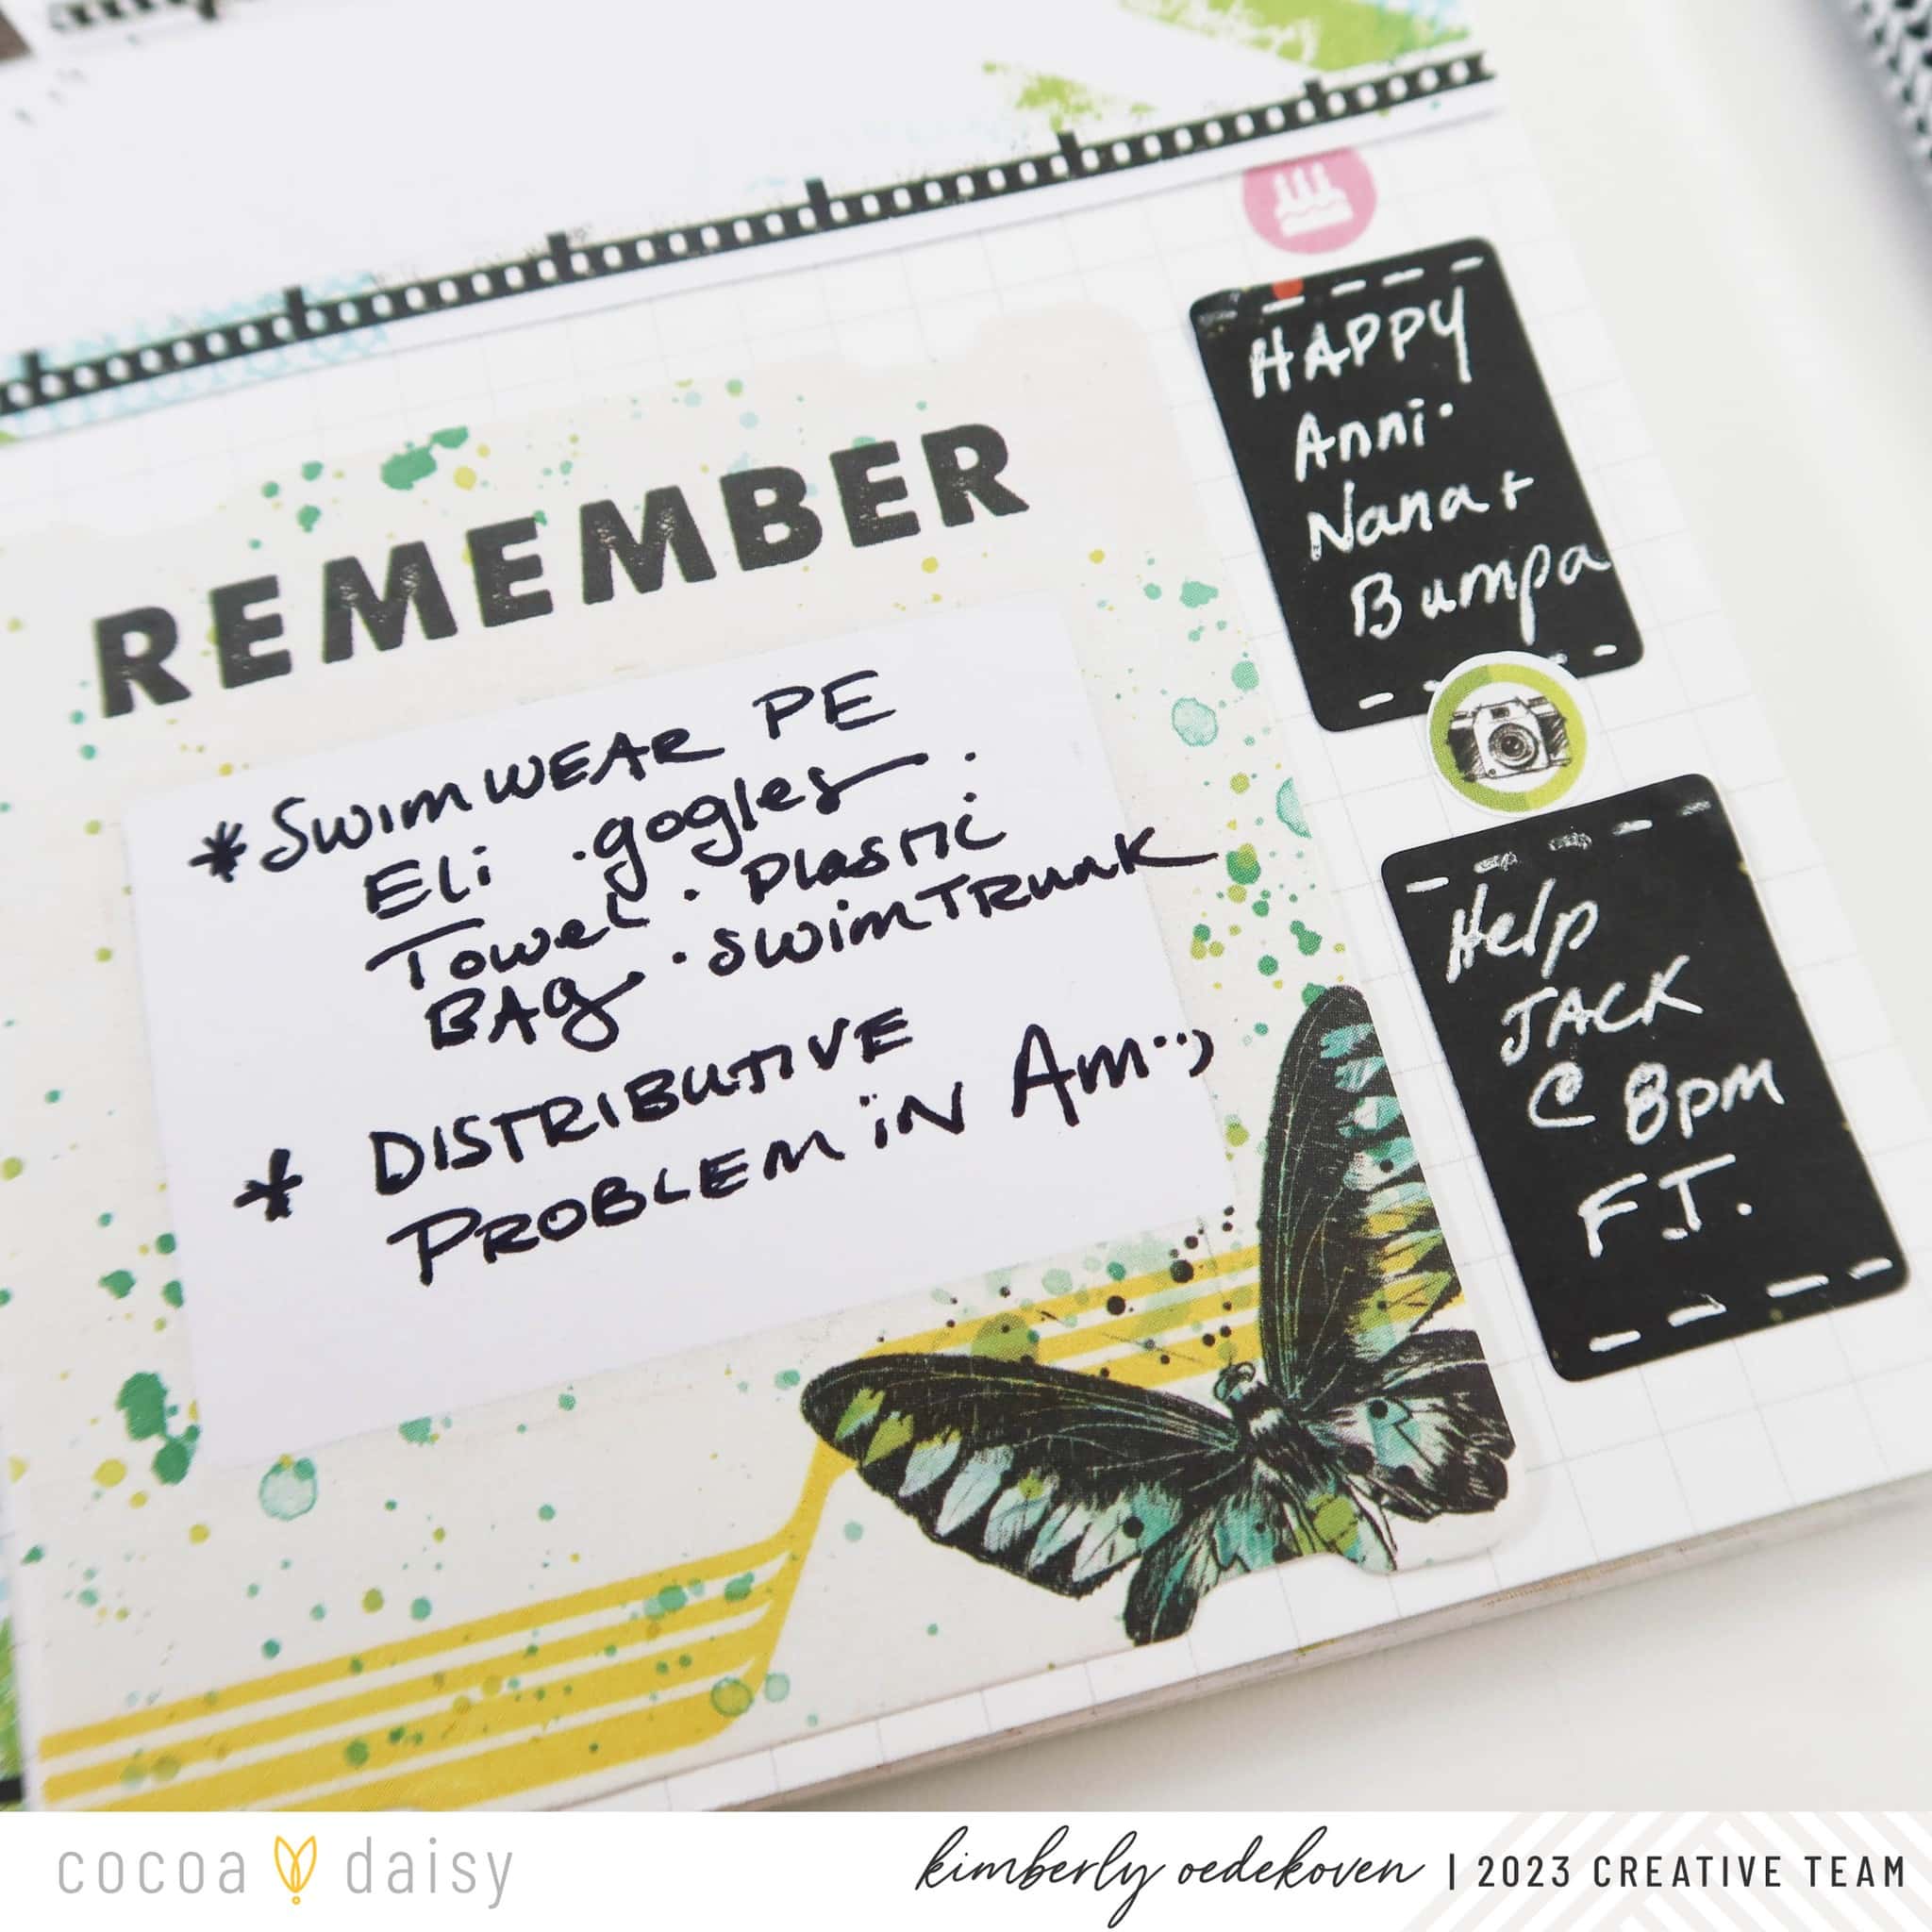 REMEMBER
*SWIMWEAR PE
Eli •gogles•
Towel • Plastic
BAg • SwimTRunk
* DISTRIBUTIVE
PROBLEM iN Am :)
HAPPY
Anni•
Nana +
Bumpa
Help
JACK
@ 8pm
F.T.
cocoa daisy
kimberly oedekoven | 2023 CREATIVE TEAM